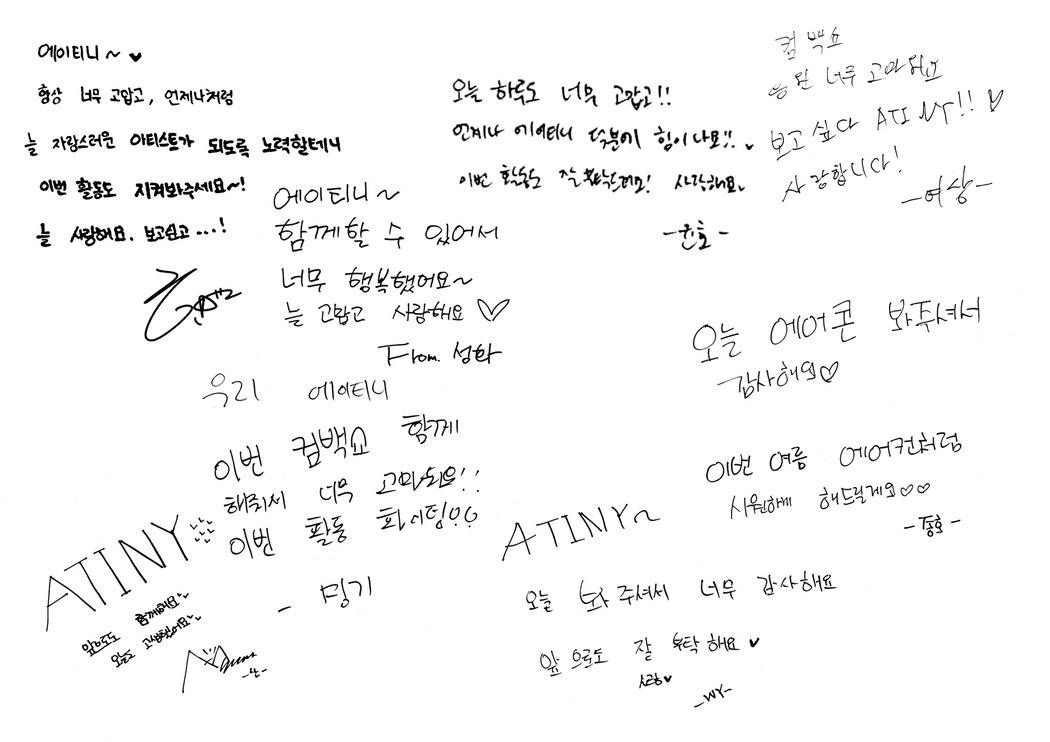 에이티니~ ♥
항상 너무 고맙고, 언제나처럼
늘 자랑스러운 아티스트가 되도록 노력할테니
이번 활동도 지켜봐주세요~!
늘 사랑해요. 보고싶고...!
에이티니~
함께할 수 있어서
너무 행복했어요~
늘 고맙고 사랑해요 ♡
From. 성화
오늘 하루도 너무 고맙고!!
언제나 에이티니 덕분에 힘이나요!! ♥
이번 활동도 잘 부탁드려요! 사랑해요
-윤호-
컴백쇼
응원 너무 고마워요
보고싶다 ATINY!! ♡
사랑합니다!
-여상-
오늘 에어콘 봐주셔서
감사해요♡
이번 여름 에어컨처럼
시원하게 해드릴게요♡♡
-종호-
우리 에이티니
이번 컴백쇼 함께
해줘서 너무 고마워요!!
이번 활동 화이팅!!
- 민기
ATINY
앞으로도 함께해요
오늘도 고생했어요
-산-
ATINY~
오늘 봐주셔서 너무 감사해요
앞으로도 잘 부탁해요 ♥
사랑해♥
-WY-